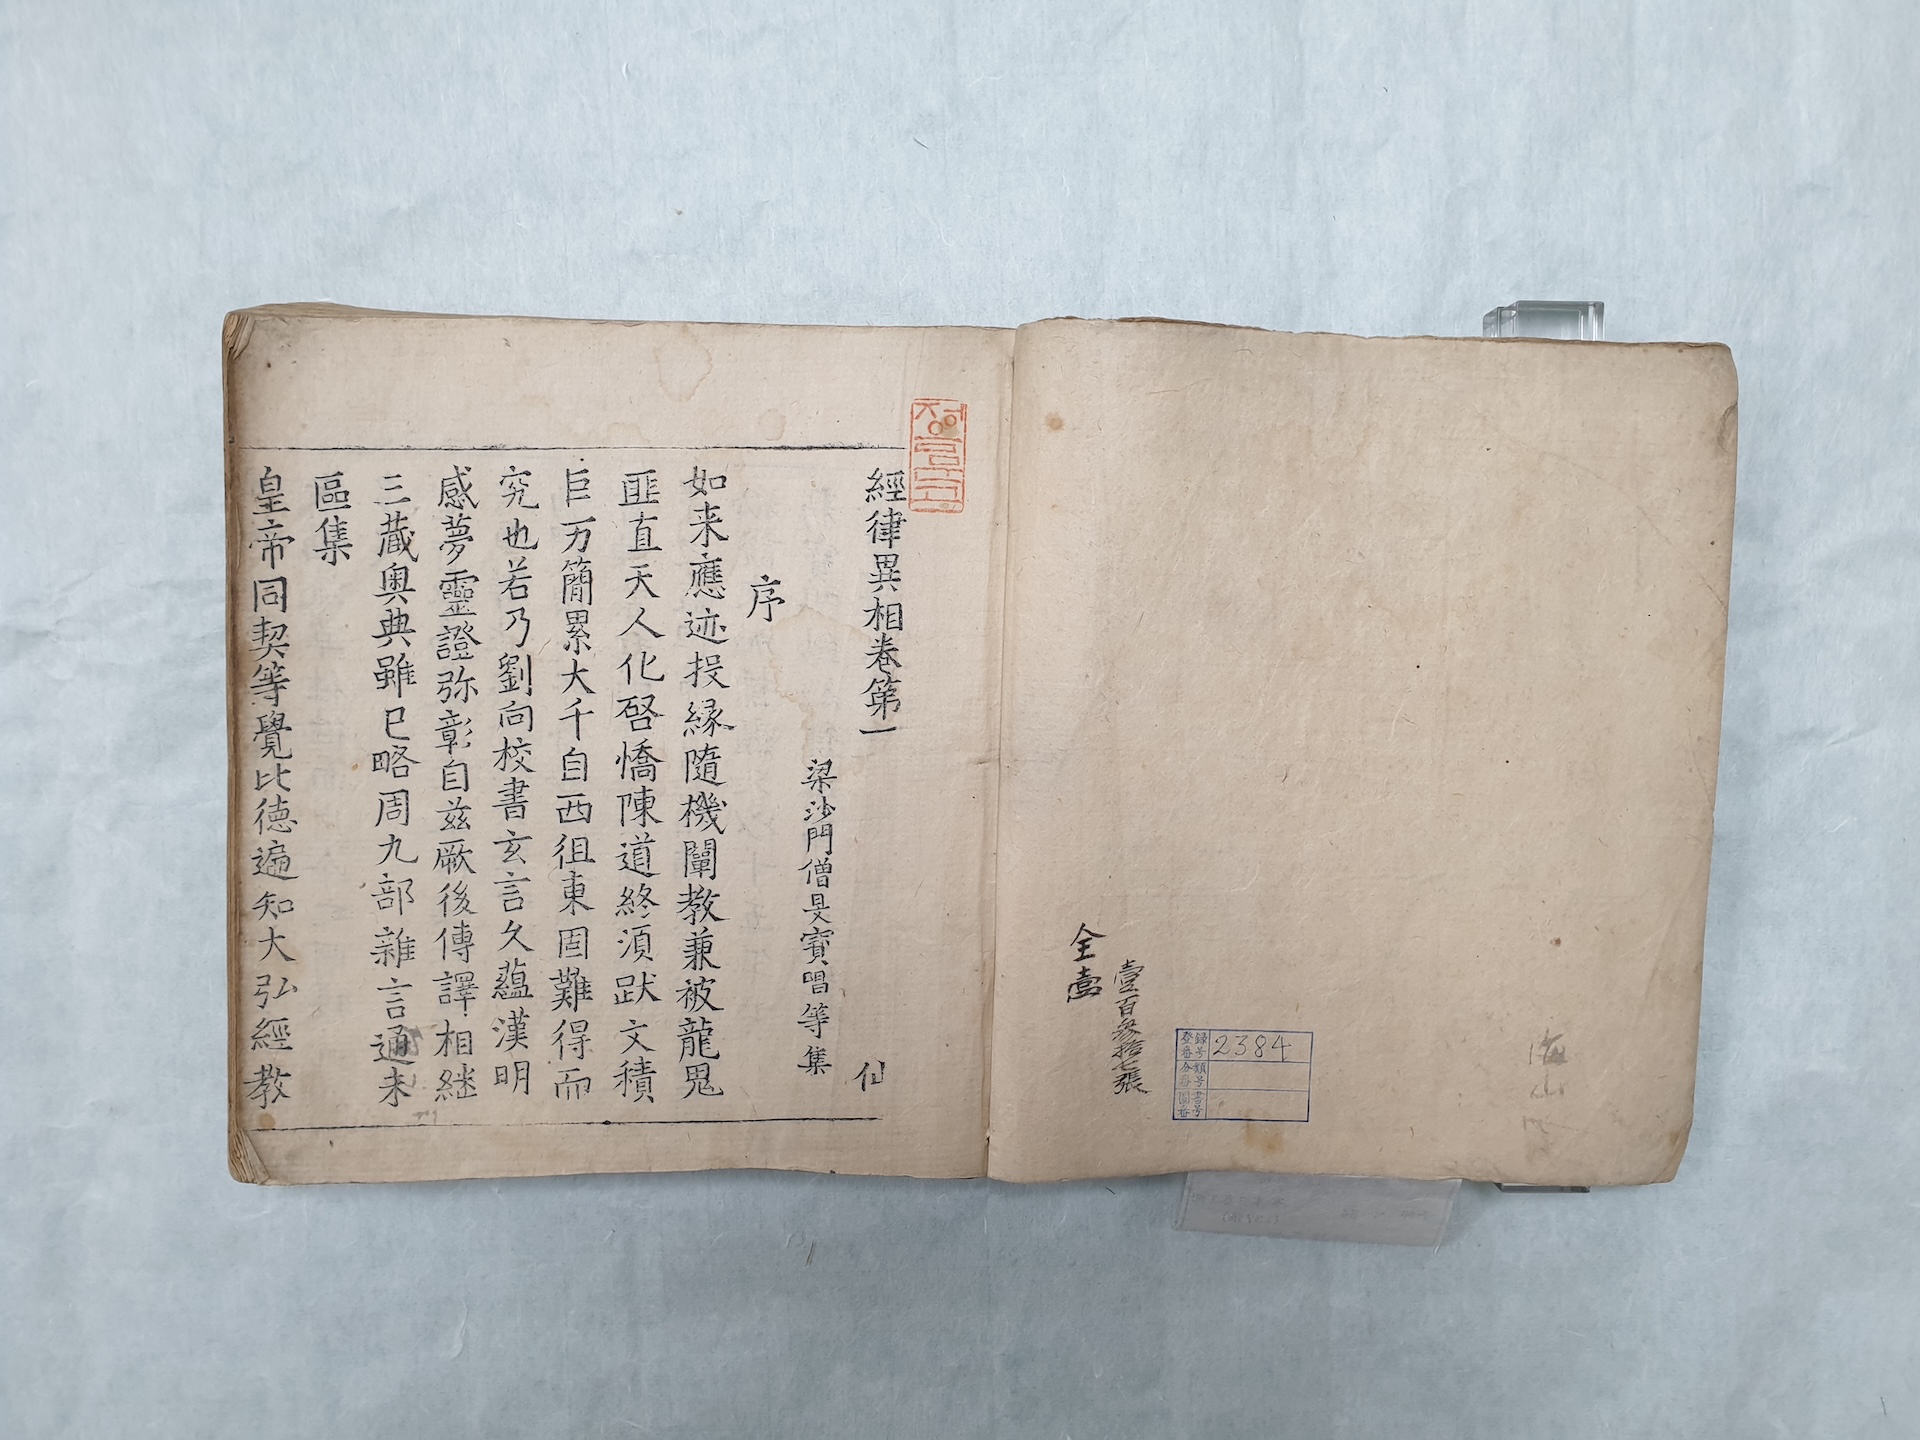 全壹
壹百参拾七張
登録番号 2384
分類番号
圖書番号
經律異相卷第一
仙
梁沙門僧旻寶唱等集
序
如来應迹投緣隨機闡教兼被龍鬼
匪直天人化啓憍陳道終須跋文積
巨万簡累大千自西徂東固難得而
究也若乃劉向校書玄言久蘊漢明
感夢靈證弥彰自兹厥後傳譯相継
三藏奥典雖已略周九部雜言通未
區集
皇帝同契等覺比德遍知大弘經教